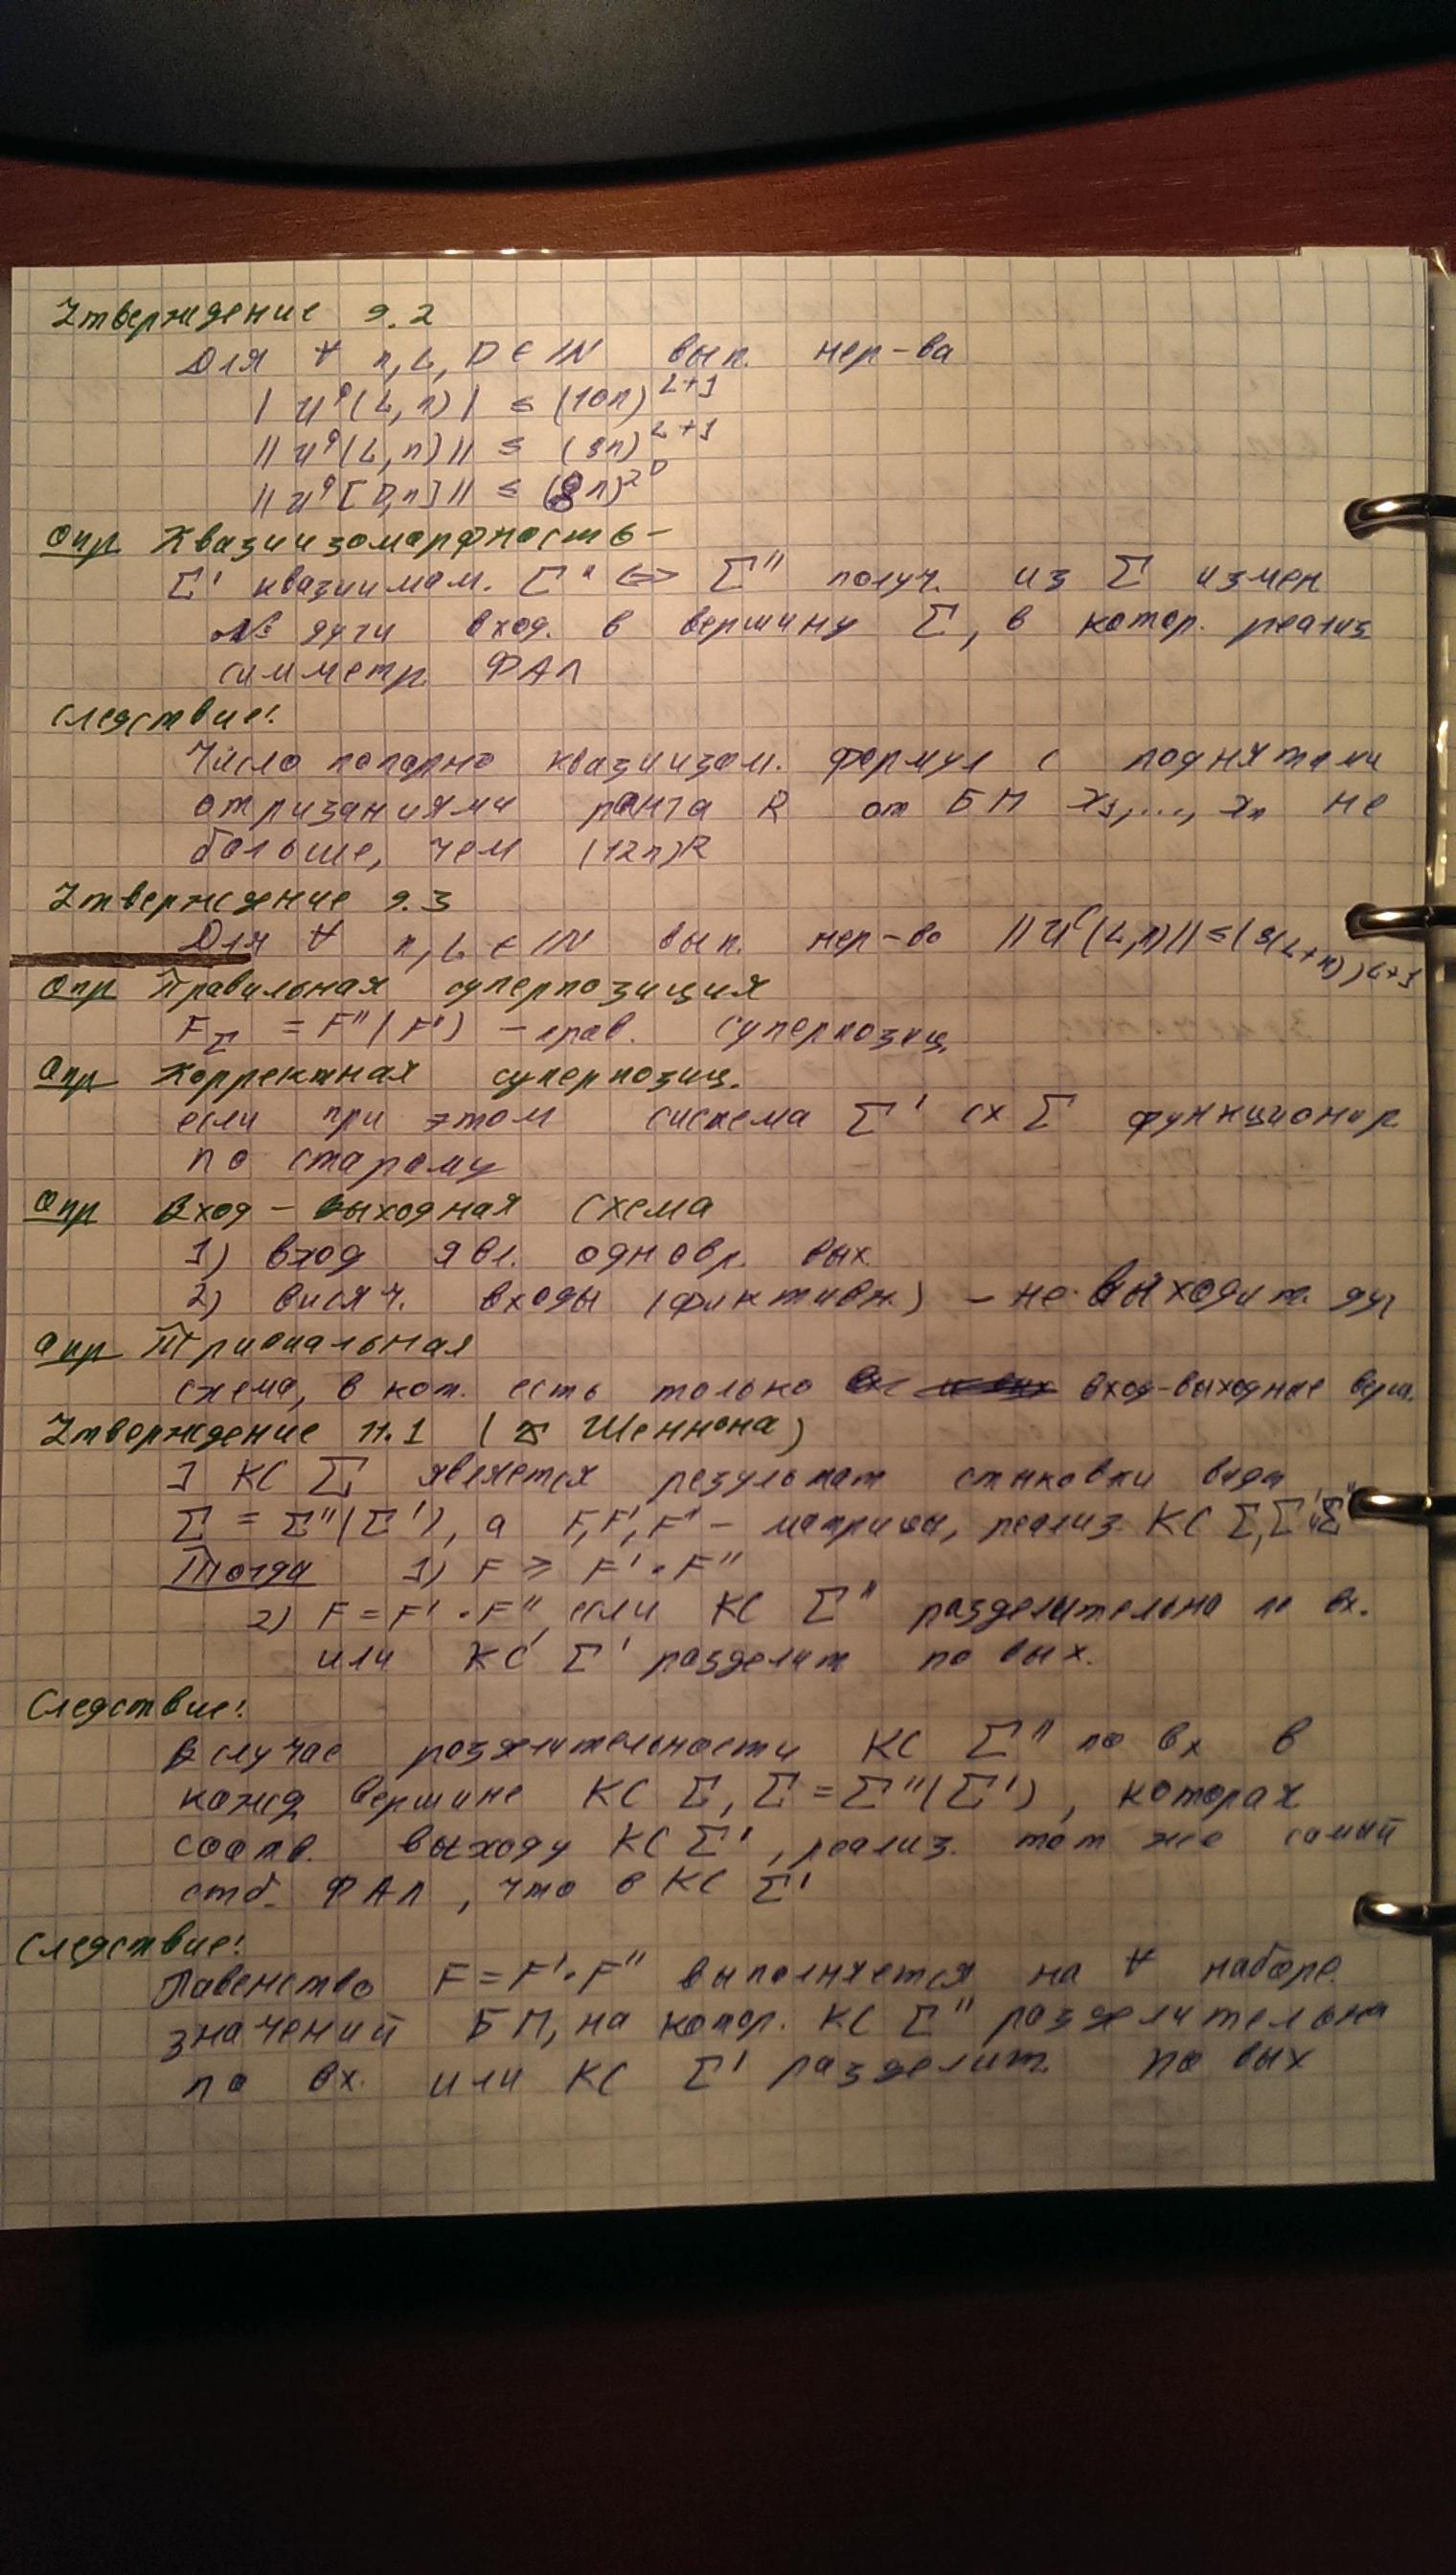 Утверждение 9.2
Для ∀ n, L, D ∈ IN вып. нер-ва
| U^φ(L, n) | ≤ (10n)^{L+1}
|| U^φ(L, n) || ≤ (8n)^{L+1}
|| U^φ[D, n] || ≤ (8n)^{2^D}
Опр Квазиизоморфность -
Σ' квазиизом. Σ" <=> Σ" получ. из Σ измен
№ дуги вход. в вершину Σ, в котор. реализ
симметр. ФАЛ
Следствие!
Число попарно квазиизом. формул с поднятыми
отризаниями ранга R от БП x₁,..., xₙ не
больше, чем (12n)R
Утверждение 9.3
Для ∀ n, L ∈ IN вып. нер-во || U^C(L, n) || ≤ (8(L+n))^{L+1}
Опр Правильная суперпозиция
F_Σ = F"(F') - прав. суперпозиц.
Опр Корректная суперпозиц.
если при этом система Σ' сх Σ функционир
по старому
Опр Вход - выходная схема
1) вход явл. одновр. вых.
2) висяч. входы (фиктивн.) - не выходит дуг
Опр Тривиальная
схема, в кот. есть только вход-выходные верш.
Утверждение 11.1 (Шеннона)
] КС Σ является результат стыковки вида
Σ = Σ"(Σ'), а F, F', F" - матрицы, реализ. КС Σ, Σ' и Σ"
Тогда 1) F ≥ F' · F"
2) F = F' · F", если КС Σ" разделительна по вх.
или КС Σ' разделит по вых.
Следствие!
В случае разделительности КС Σ" по вх в
кажд вершине КС Σ, Σ = Σ"(Σ'), которая
соотв. выходу КС Σ', реализ. тот же самый
стб. ФАЛ, что в КС Σ'
Следствие!
Равенство F = F' · F" выполняется на ∀ наборе
значений БП, на котор. КС Σ" разделительна
по вх. или КС Σ' разделит. по вых